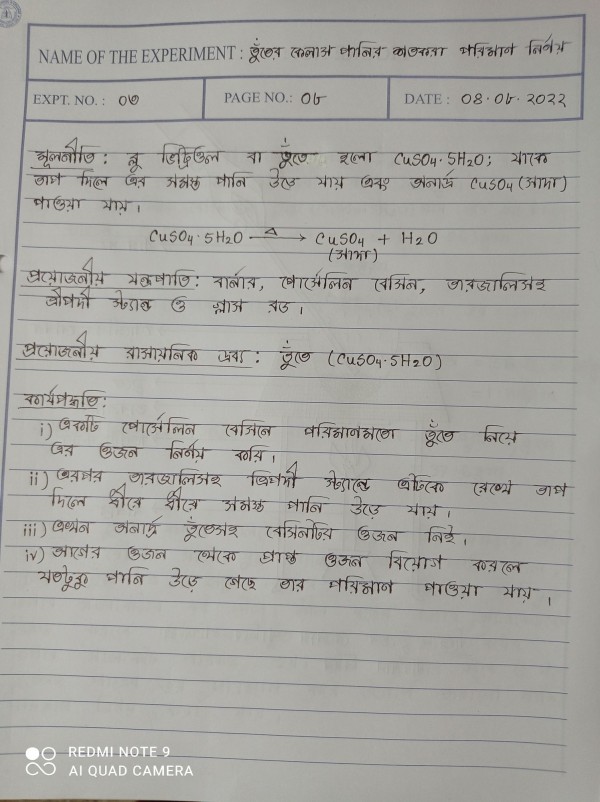 NAME OF THE EXPERIMENT : তুঁতের কেলাস পানির শতকরা পরিমান নির্নয়
EXPT. NO. : 0৩ PAGE NO.: 0৮ DATE : 08.0৮.2022
মূলনীতি : ব্লু ভিট্রিওল বা তুঁতে হলো CuSO4·5H2O; যাকে
তাপ দিলে এর সমস্ত পানি উড়ে যায় এবং অনার্দ্র CuSO4 (সাদা)
পাওয়া যায়।
CuSO4·5H2O —Δ→ CuSO4 + H2O
(সাদা)
প্রয়োজনীয় যন্ত্রপাতি : বার্নার, পোর্সেলিন বেসিন, তারজালিসহ
ত্রীপদী স্ট্যান্ড ও গ্লাস রড।
প্রয়োজনীয় রাসায়নিক দ্রব্য : তুঁতে (CuSO4·5H2O)
কার্যপদ্ধতি :
i) একটি পোর্সেলিন বেসিনে পরিমানমতো তুঁতে নিয়ে
এর ওজন নির্নয় করি।
ii) এরপর তারজালিসহ ত্রিপদী স্ট্যান্ডে এটিকে রেখে তাপ
দিলে ধীরে ধীরে সমস্ত পানি উড়ে যায়।
iii) এখন অনার্দ্র তুঁতেসহ বেসিনটির ওজন নিই।
iv) আগের ওজন থেকে প্রাপ্ত ওজন বিয়োগ করলে
যতটুকু পানি উড়ে গেছে তার পরিমান পাওয়া যায়।
REDMI NOTE 9
AI QUAD CAMERA